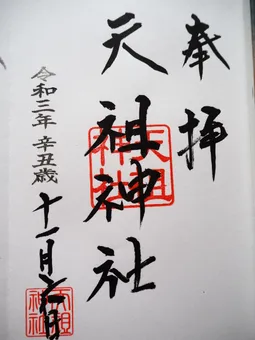 奉拝
天祖神社
天祖
神社
令和三年 辛丑歳
十一月日